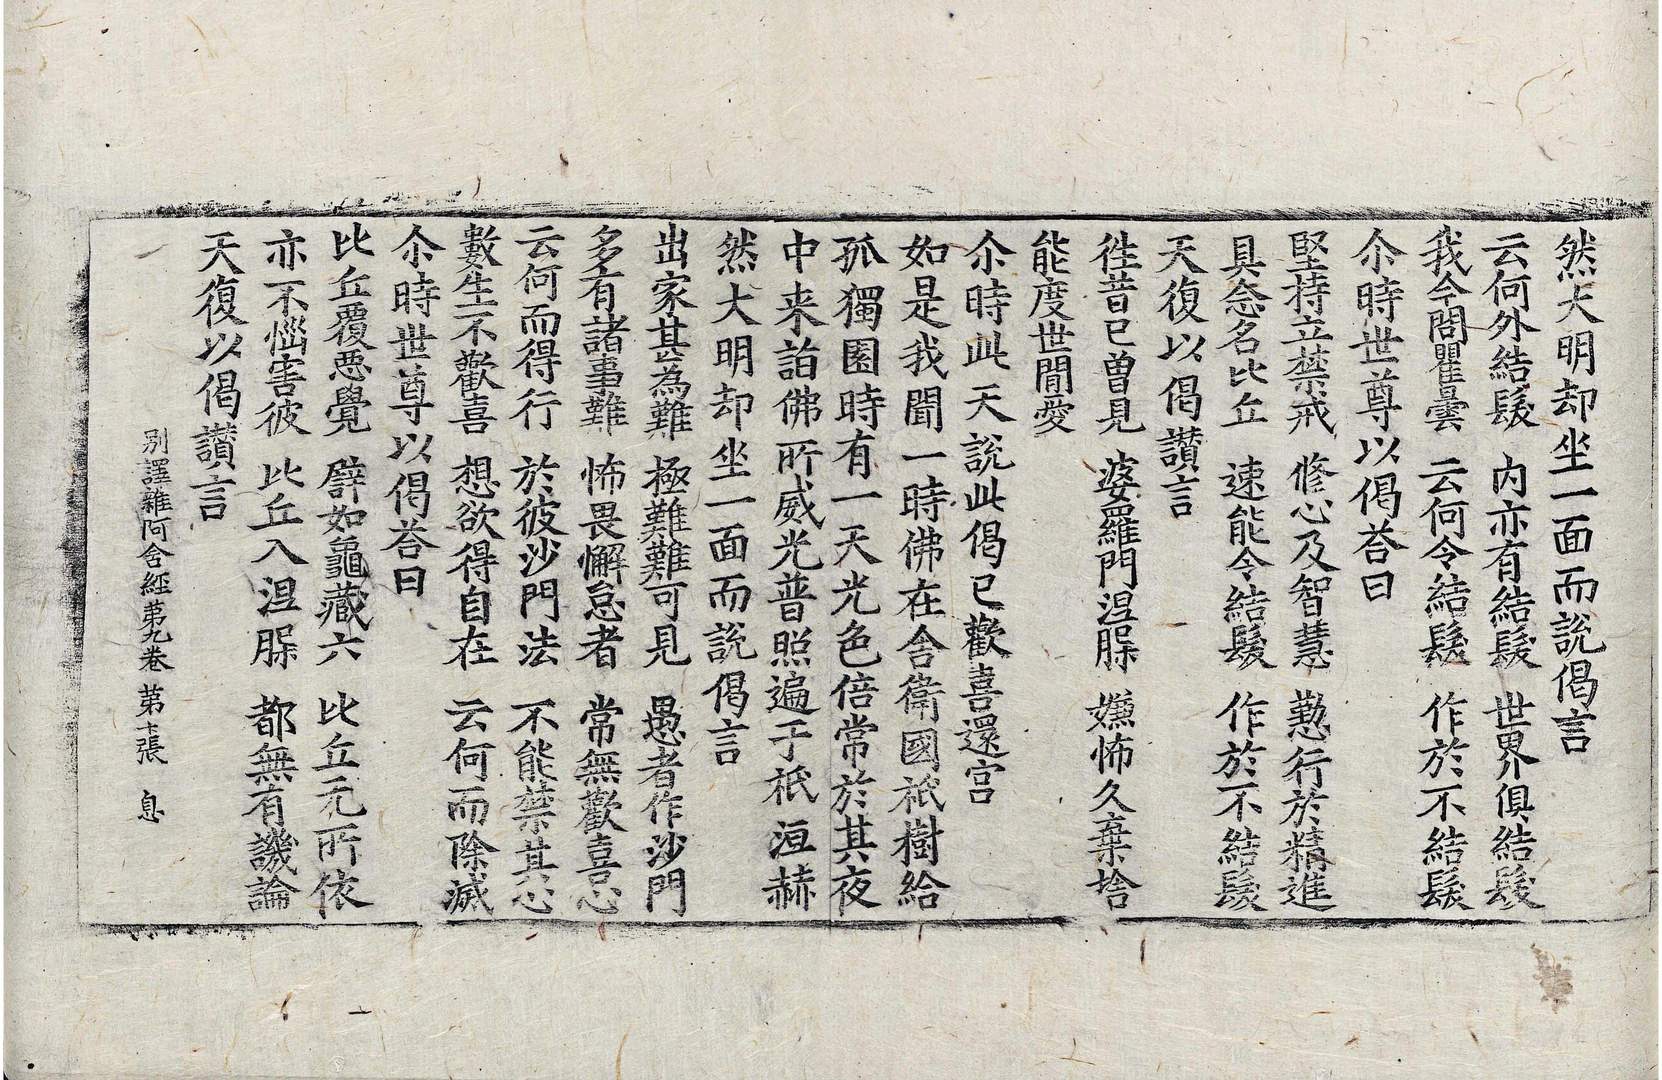 然大明却坐一面而說偈言
云何外結髮　內亦有結髮　世界俱結髮
我今問瞿曇　云何令結髮　作於不結髮
尒時世尊以偈荅曰
堅持立禁戒　修心及智慧　懃行於精進
具念名比丘　速能令結髮　作於不結髮
天復以偈讚言
徃昔已曾見　婆羅門涅槃　嫌怖久棄捨
能度世間愛
尒時此天說此偈已歡喜還宫
如是我聞一時佛在舍衛國祇樹給
孤獨園時有一天光色倍常於其夜
中来詣佛所威光普照遍于祇洹赫
然大明却坐一面而說偈言
出家甚爲難　極難難可見　愚者作沙門
多有諸事難　怖畏懈怠者　常無歡喜心
云何而得行　於彼沙門法　不能禁其心
數生不歡喜　想欲得自在　云何而除滅
尒時世尊以偈荅曰
比丘覆惡覺　譬如龜藏六　比丘无所依
亦不惱害彼　比丘入涅槃　都無有譏論
天復以偈讚言
別譯雜阿含經第九卷　第十張　息